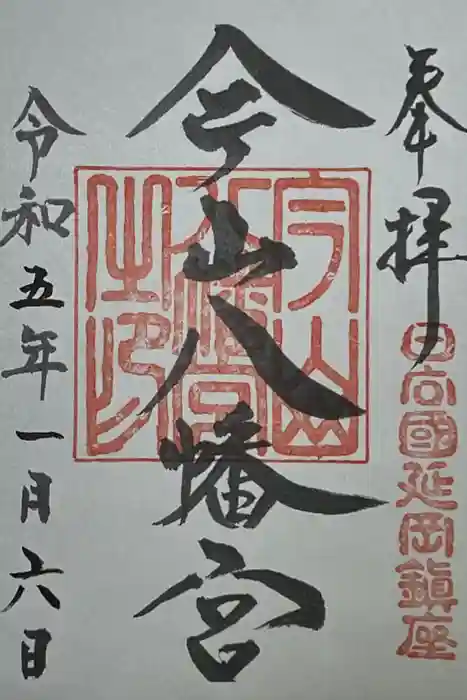 奉拝
日向國延岡鎮座
今山八幡宮
今山八幡宮之印
令和五年一月六日